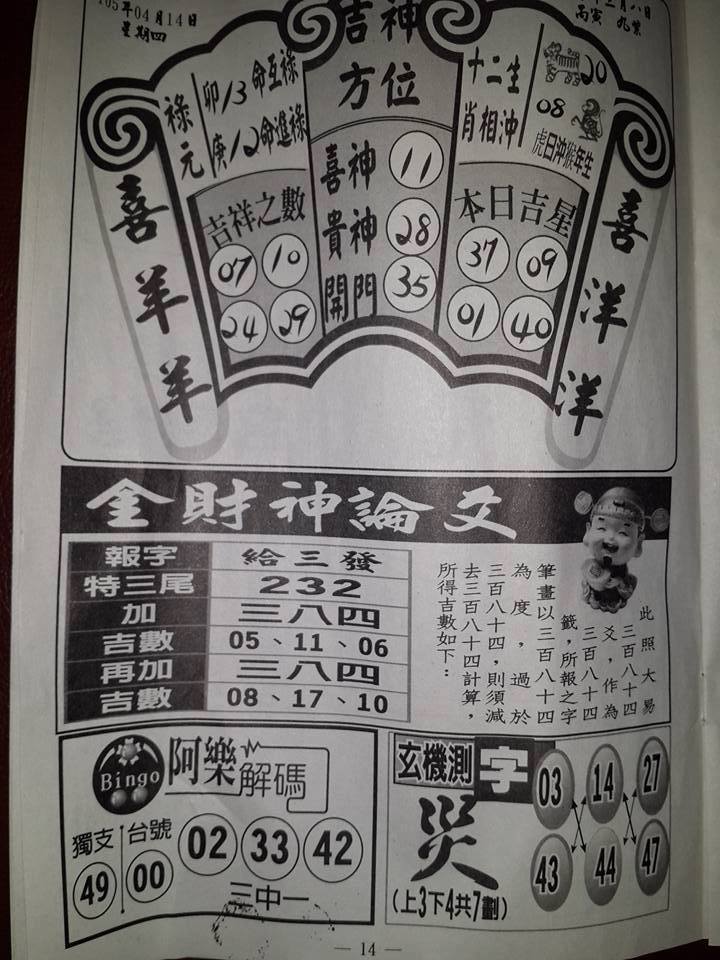 105年04月14日
星期四
三月八日
丙寅 九紫
吉神
方位
祿元
卯/13命互祿
庚/12命進祿
十二生
肖相沖
20
08
虎日沖猴年生
喜羊羊
吉祥之數
07 10
24 29
喜神 11
貴神 28
開門 35
本日吉星
37 09
01 40
喜洋洋
金財神論爻
報字 給三發
特三尾 232
加 三八四
吉數 05、11、06
再加 三八四
吉數 08、17、10
此照大易
三百八十四
爻，作為
三百八十四
籤，所報之字
筆畫以三百八十四
為度，過於
三百八十四，則須減
去三百八十四計算，
所得吉數如下：
Bingo
阿樂解碼
獨支 49
台號 00
02 33 42
三中一
玄機測字
災
(上3下4共7劃)
03 14 27
43 44 47
— 14 —